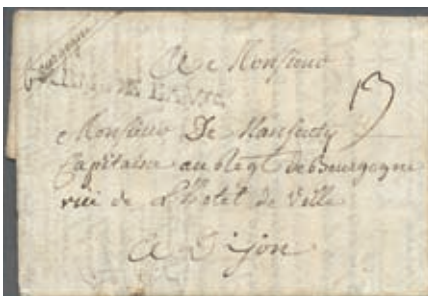 Bourgogne
A Monsieur
13
Monsieur De
Capitaine au Regt de Bourgogne
rue de L'hotel de Ville
A Dijon